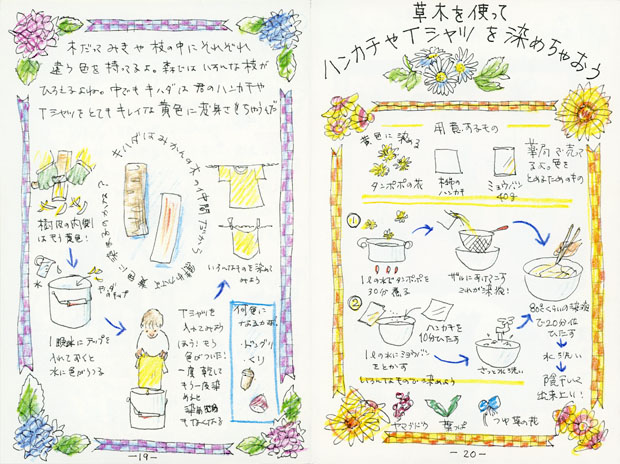 木だってみきや枝の中にそれぞれ
違う色を持ってるよ。森にはいろんな枝が
ひろえるよね。中でもキハダは君のハンカチや
Tシャツをとてもキレイな黄色に変身させちゃうんだ
キハダはみかんの木の仲間だから
樹皮の内側
はもう黄色!
水
1晩水にチップを
入れておくと
水に色がうつる
Tシャツを
入れてみよう
ほう!もう
色がついた!
一度乾して
もう一度染
めると
いろいろなものを染めて
みよう
何色に
なるかな?
・ドングリ
・くり
-19-
草木を使って
ハンカチやTシャツを染めちゃおう
黄色に染める
用意するもの
タンポポの花
木綿の
ハンカチ
ミョウバン
40g
薬局で売って
るよ。色を
とめるためのもの
①
1ℓの水でタンポポを
30分煮る
ザルにあけてこす
これが染液!
80℃くらいの染液
で20分位
ひたす
水洗い
陰干しで
出来上り!
②
ハンカチを
10分ひたす
1ℓの水にミョウバン
をとかす
さっと水洗い
いろいろなもので染めよう
ヤマブドウ
葉っぱ
つゆ草の花
-20-